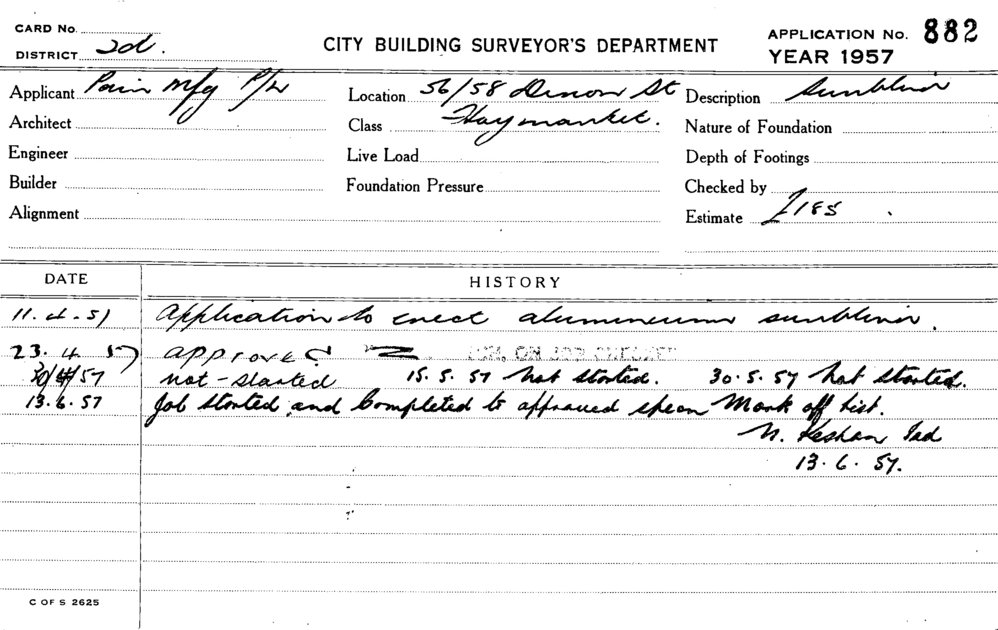 CARD No.
DISTRICT 2d.
CITY BUILDING SURVEYOR'S DEPARTMENT
APPLICATION No. 882
YEAR 1957
Applicant Mfg P/L
Location 56/58 Dixon St
Haymarket.
Description Sunblind
Architect
Class
Nature of Foundation
Engineer
Live Load
Depth of Footings
Builder
Foundation Pressure
Checked by
Alignment
Estimate £185
DATE HISTORY
11.4.57 Application to erect alumineum sunblind.
23.4 57 approved
30/4/57 not-started 15.5.57 Not started. 30.5.57 Not started.
13.6.57 Job started and Completed to approved Mark off list.
13.6.57.
C OF S 2625